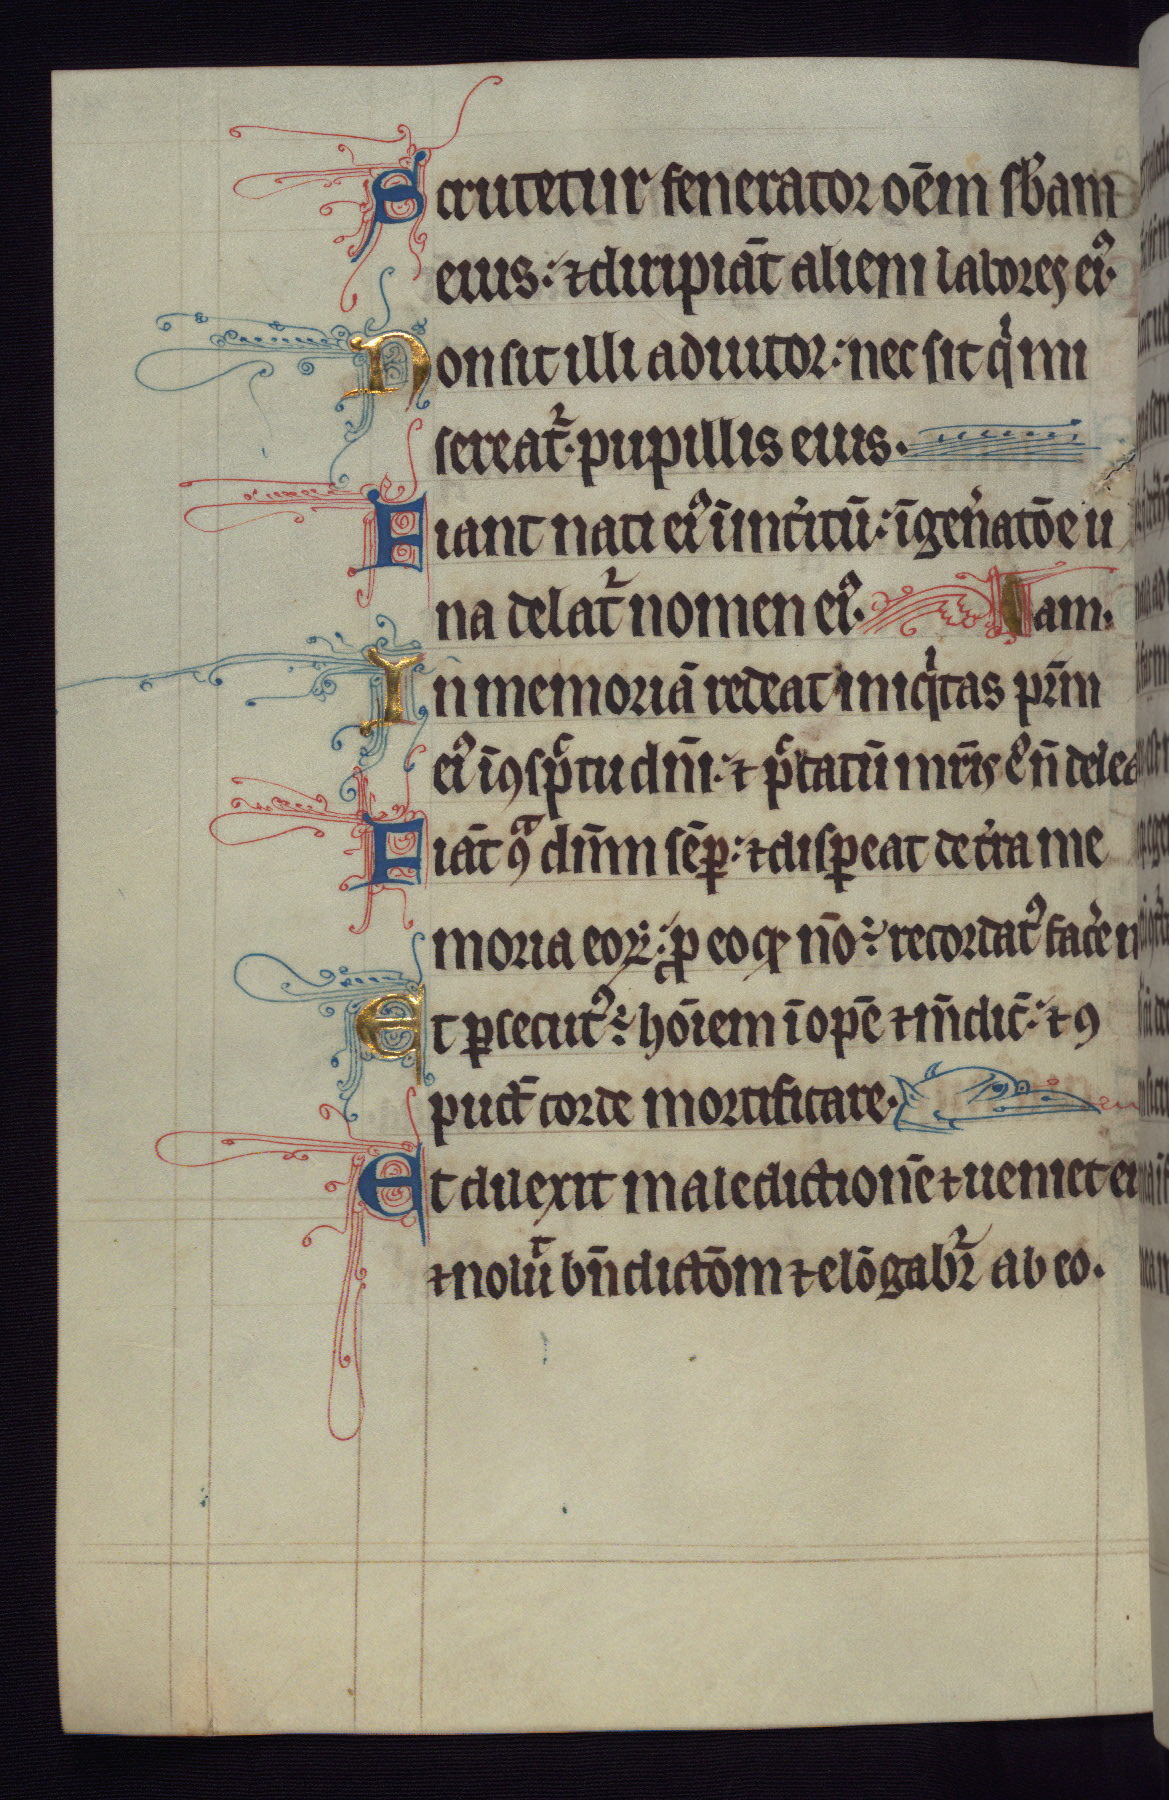 Scrutetur fenerator oēm sƀam
eius: ⁊diripiāt alieni labores eiꝰ.
Non sit illi adiutor: nec sit qͥ mi
sereat᷑ pupillis eius.
Fiant nati eiꝰ ī int̾itū: ī gen̾atōe u
na deleat᷑ nomen eiꝰ. am.
In memoriā redeat iniqͥtas pr̄m
eiꝰ ī ꝯspc̄tu dn̄i: ⁊ pc̄catū mr̄is eiꝰ n̄ delea
Fiāt ꝯͣ dn̄m sēp: ⁊disꝑeat de t̾ra me
moria eoꝝ: ꝓ eo ꝙ nō ē recordatꝰ face̾ m
Et ꝑsecutꝰ ē hōiem īopē ⁊ mn̄dic̄: ⁊ ꝯ
puct̄ corde mortificare.
Et dilexit maledictionē ⁊ ueniet ei
⁊ noluͭ bn̄dictōm ⁊ elōgabr᷑ ab eo.